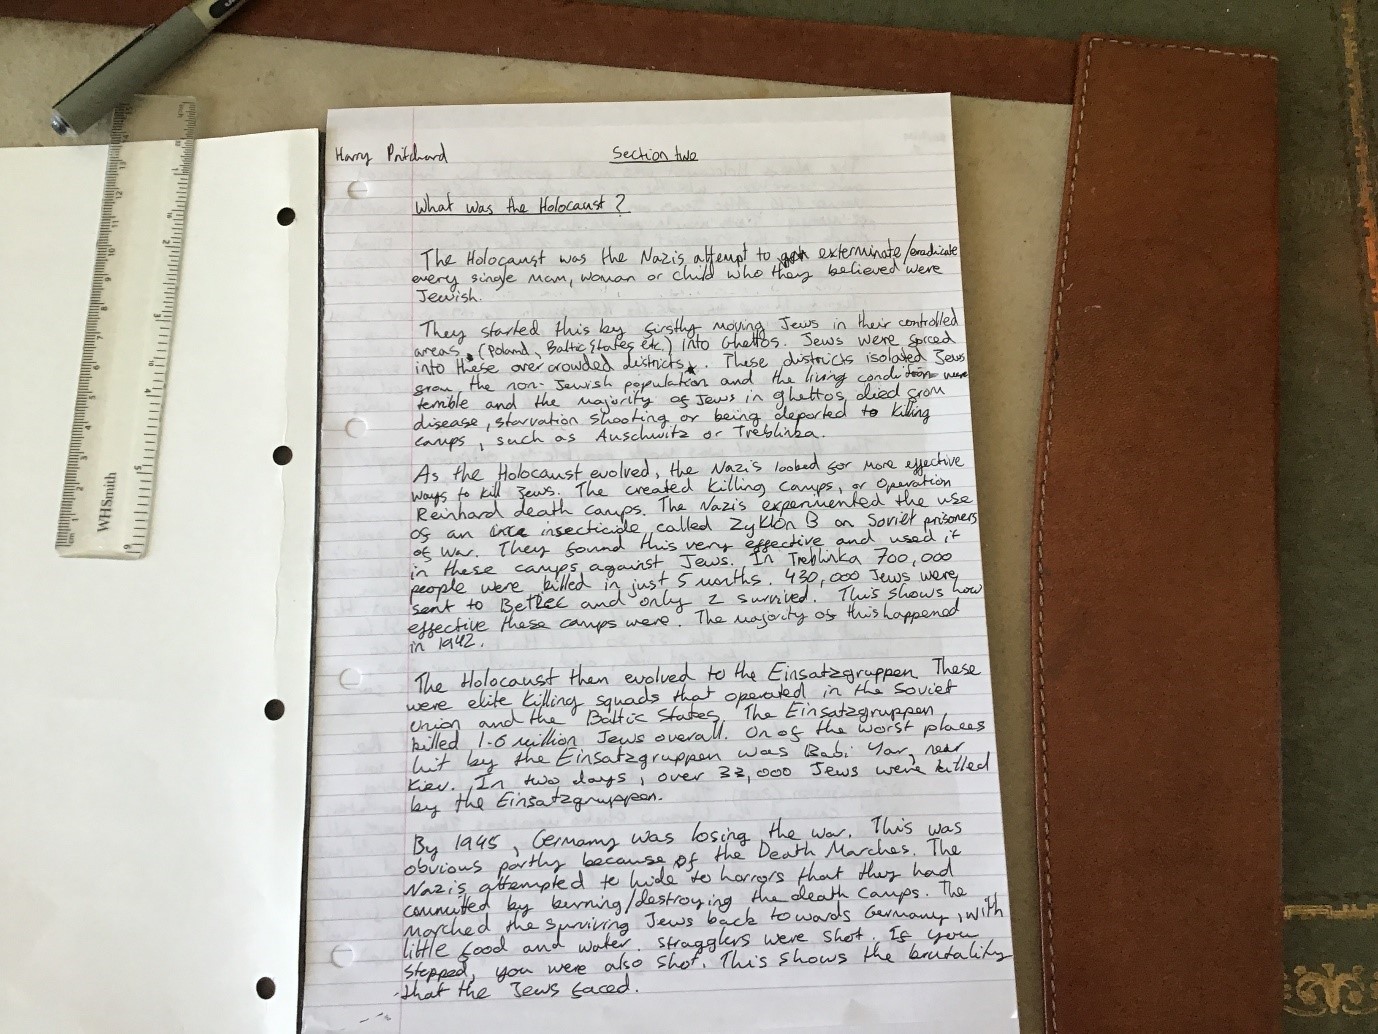 Harry Pritchard
Section two
What was the Holocaust?
The Holocaust was the Nazis attempt to exterminate/eradicate
every single man, woman or child who they believed were
Jewish.
They started this by firstly moving Jews in their controlled
areas, (Poland, Baltic States etc.) into Ghettos. Jews were forced
into these overcrowded districts. These districts isolated Jews
from the non-Jewish population and the living condition were
terrible and the majority of Jews in ghettos died from
disease, starvation shooting or being deported to killing
camps, such as Auschwitz or Treblinka.
As the Holocaust evolved, the Nazi's looked for more effective
ways to kill Jews. The created killing camps, or Operation
Reinhard death camps. The Nazis experimented the use
of an insecticide called Zyklon B on Soviet prisoners
of war. They found this very effective and used it
in these camps against Jews. In Treblinka 700,000
people were killed in just 5 months. 430,000 Jews were
sent to Betlec and only 2 survived. This shows how
effective these camps were. The majority of this happened
in 1942.
The Holocaust then evolved to the Einsatzgruppen. These
were elite killing squads that operated in the Soviet
Union and the Baltic States. The Einsatzgruppen
killed 1.6 million Jews overall. On of the worst places
hit by the Einsatzgruppen was Babi Yar, near
Kiev. In two days, over 33,000 Jews were killed
by the Einsatzgruppen.
By 1945, Germany was losing the war. This was
obvious partly because of the Death Marches. The
Nazis attempted to hide to horrors that they had
committed by burning/destroying the death camps. The
marched the surviving Jews back towards Germany, with
little food and water. Stragglers were shot. If you
stopped, you were also shot. This shows the brutality
that the Jews faced.
WHSmith